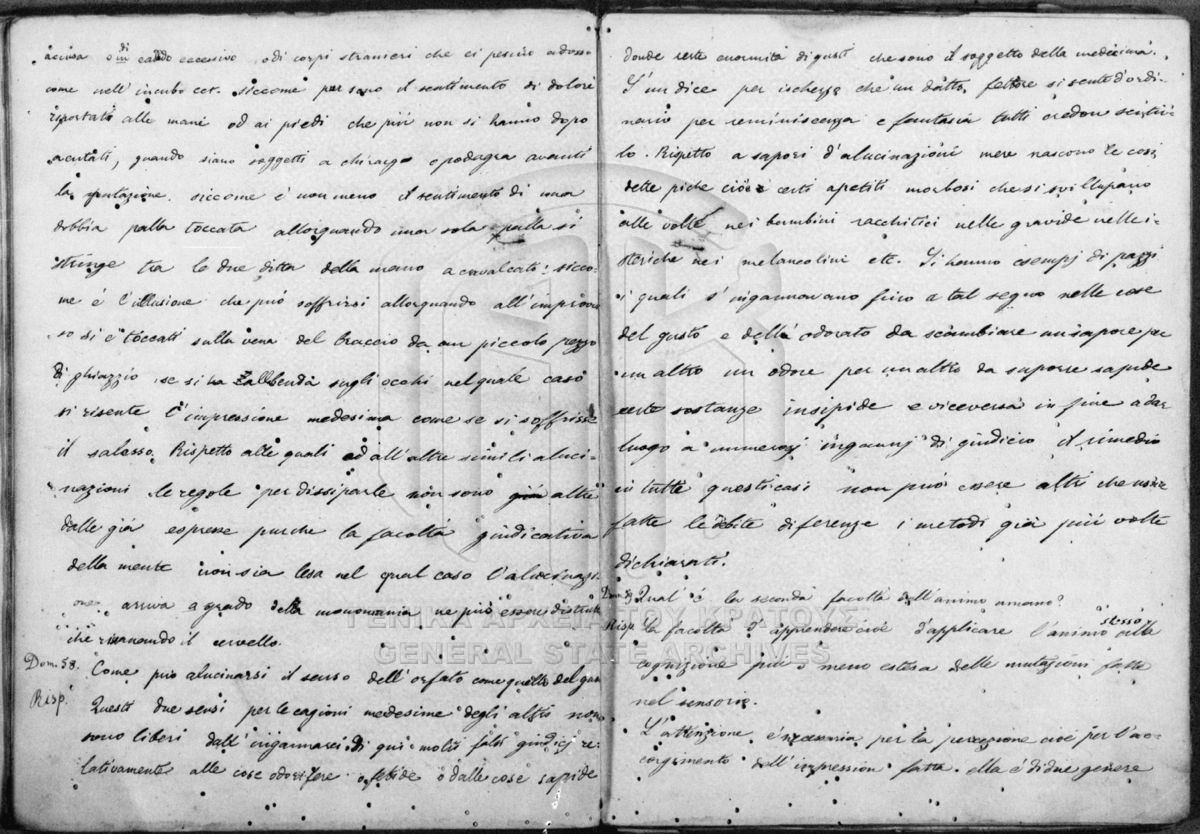 accusa o di in caldo eccessivo, o di corpi stranieri che ci pesino adosso
come nell'incubo cet. siccome pur sano il sentimento di dolori
riportato alle mani od ai piedi che più non si hanno dopo
acutati, quando siano soggetti a chirarga e podagra avanti
la putazione. siccome è non meno il sentimento di una
dobbia palla toccata allorquando una sola palla si
stringe tra le due ditta della mano acavalcati: sicco-
me è l'illusione che può soffrirsi allorquando all'improvi
so si è toccati sulla vena del braccio da un piccolo pezzo
di ghiazzio se si ha la benda sugli occhi nel quale caso
si risente l'impressione medesima come se si soffrisse
il salasso. Rispetto alle quali ed all'altre simili aluci-
nazioni le regole per dissiparle non sono già altre
dalle già espresse purche la facoltà giudicativa
della mente non sia lesa nel qual caso l'alucinazi
one arriva a grado della monomania ne può essere distrutta
che risanando il cervello.
Dom. 58. Come può alucinarsi il senso dell'orfato come quello del gus
Risp. Questi due sensi per le cagioni medesime degli altri non
sono liberi dall'ingannarsi. Di qui molti falsi giudicj re-
lativamente alle cose odorifere o fetide o dalle cose sapide
donde certe enormità di gusti che sono il soggetto della medicina.
S'un dice per ischerzo che un datto fettore si sente d'ordi-
nario per reminiscenza e fantasia tutti credon sentir-
lo. Rispetto a sapori d'alucinazioni mere nascono le così
dette piche cioè certi apetiti morbosi che si sviluppano
alle volte nei bambini racchitici nelle gravide nelle i-
steriche nei melancolici etc. Si hanno esempj di pazzi
i quali s'ingannavano fino a tal segno nelle cose
del gusto e della odorato da scambiare un sapore per
un altro un odore per un altro da saporre sapide
certe sostanze insipide e viceversa in fine a dar
luogo a numerosi ingannj di giudicio il rimedio
in tutti questi casi non può essere altri che usare
fatte le debite diferenze i metodi già più volte
dichiarati.
Dom. 59 Qual è la seconda facoltà dell'animo umano?
Risp. La facoltà d'apprendere cioè d'applicare l'animo stesso alla
cognizione più o meno estesa delle mutazioni fatte
nel sensorio.
L'attenzione è necessaria per la percezione cioè per l'ac-
corgimento dell'impression fatta. ella è di due genere
ΓΕΝΙΚΑ ΑΡΧΕΙΑ ΤΟΥ ΚΡΑΤΟΥΣ
GENERAL STATE ARCHIVES